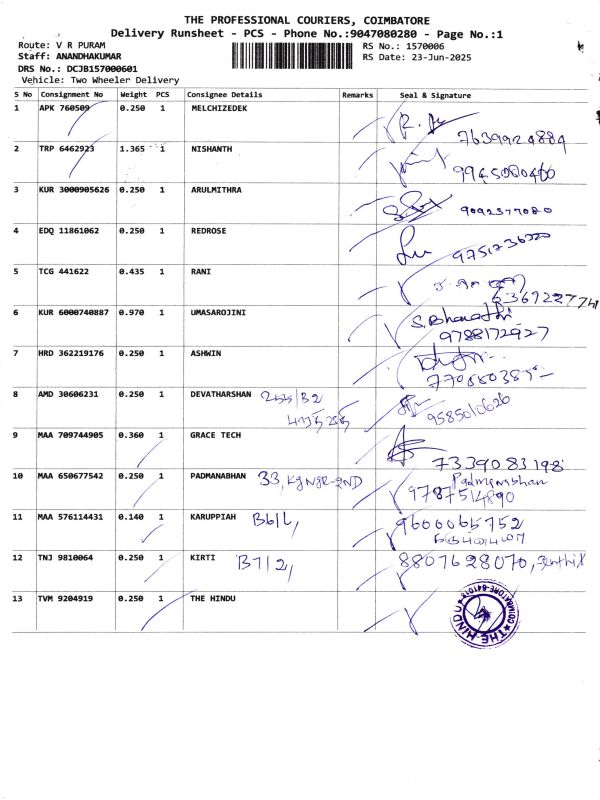 THE PROFESSIONAL COURIERS, COIMBATORE
Delivery Runsheet - PCS - Phone No.:9047080280 - Page No.:1
Route: V R PURAM RS No.: 1570006
Staff: ANANDHAKUMAR RS Date: 23-Jun-2025
DRS No.: DCJB157000601
Vehicle: Two Wheeler Delivery
S No Consignment No Weight PCS Consignee Details Remarks Seal & Signature
1 APK 760509 0.250 1 MELCHIZEDEK
7639924884
2 TRP 6462923 1.365 1 NISHANTH
9945080460
3 KUR 3000905626 0.250 1 ARULMITHRA
9092577080
4 EDQ 11861062 0.250 1 REDROSE
9751236320
5 TCG 441622 0.435 1 RANI
6 KUR 6000740887 0.970 1 UMASAROJINI
S.Bharathi
9788172927
7 HRD 362219176 0.250 1 ASHWIN
8 AMD 30606231 0.250 1 DEVATHARSHAN
9585010626
9 MAA 709744905 0.360 1 GRACE TECH
7339083198
10 MAA 650677542 0.250 1 PADMANABHAN 33, KgNgR-2ND Padmanabhan
9787514890
11 MAA 576114431 0.140 1 KARUPPIAH B6/L, 9600065752
12 TNJ 9810064 0.250 1 KIRTI B7/2, 8807628070,
13 TVM 9204919 0.250 1 THE HINDU
THE HINDU COIMBATORE-641018